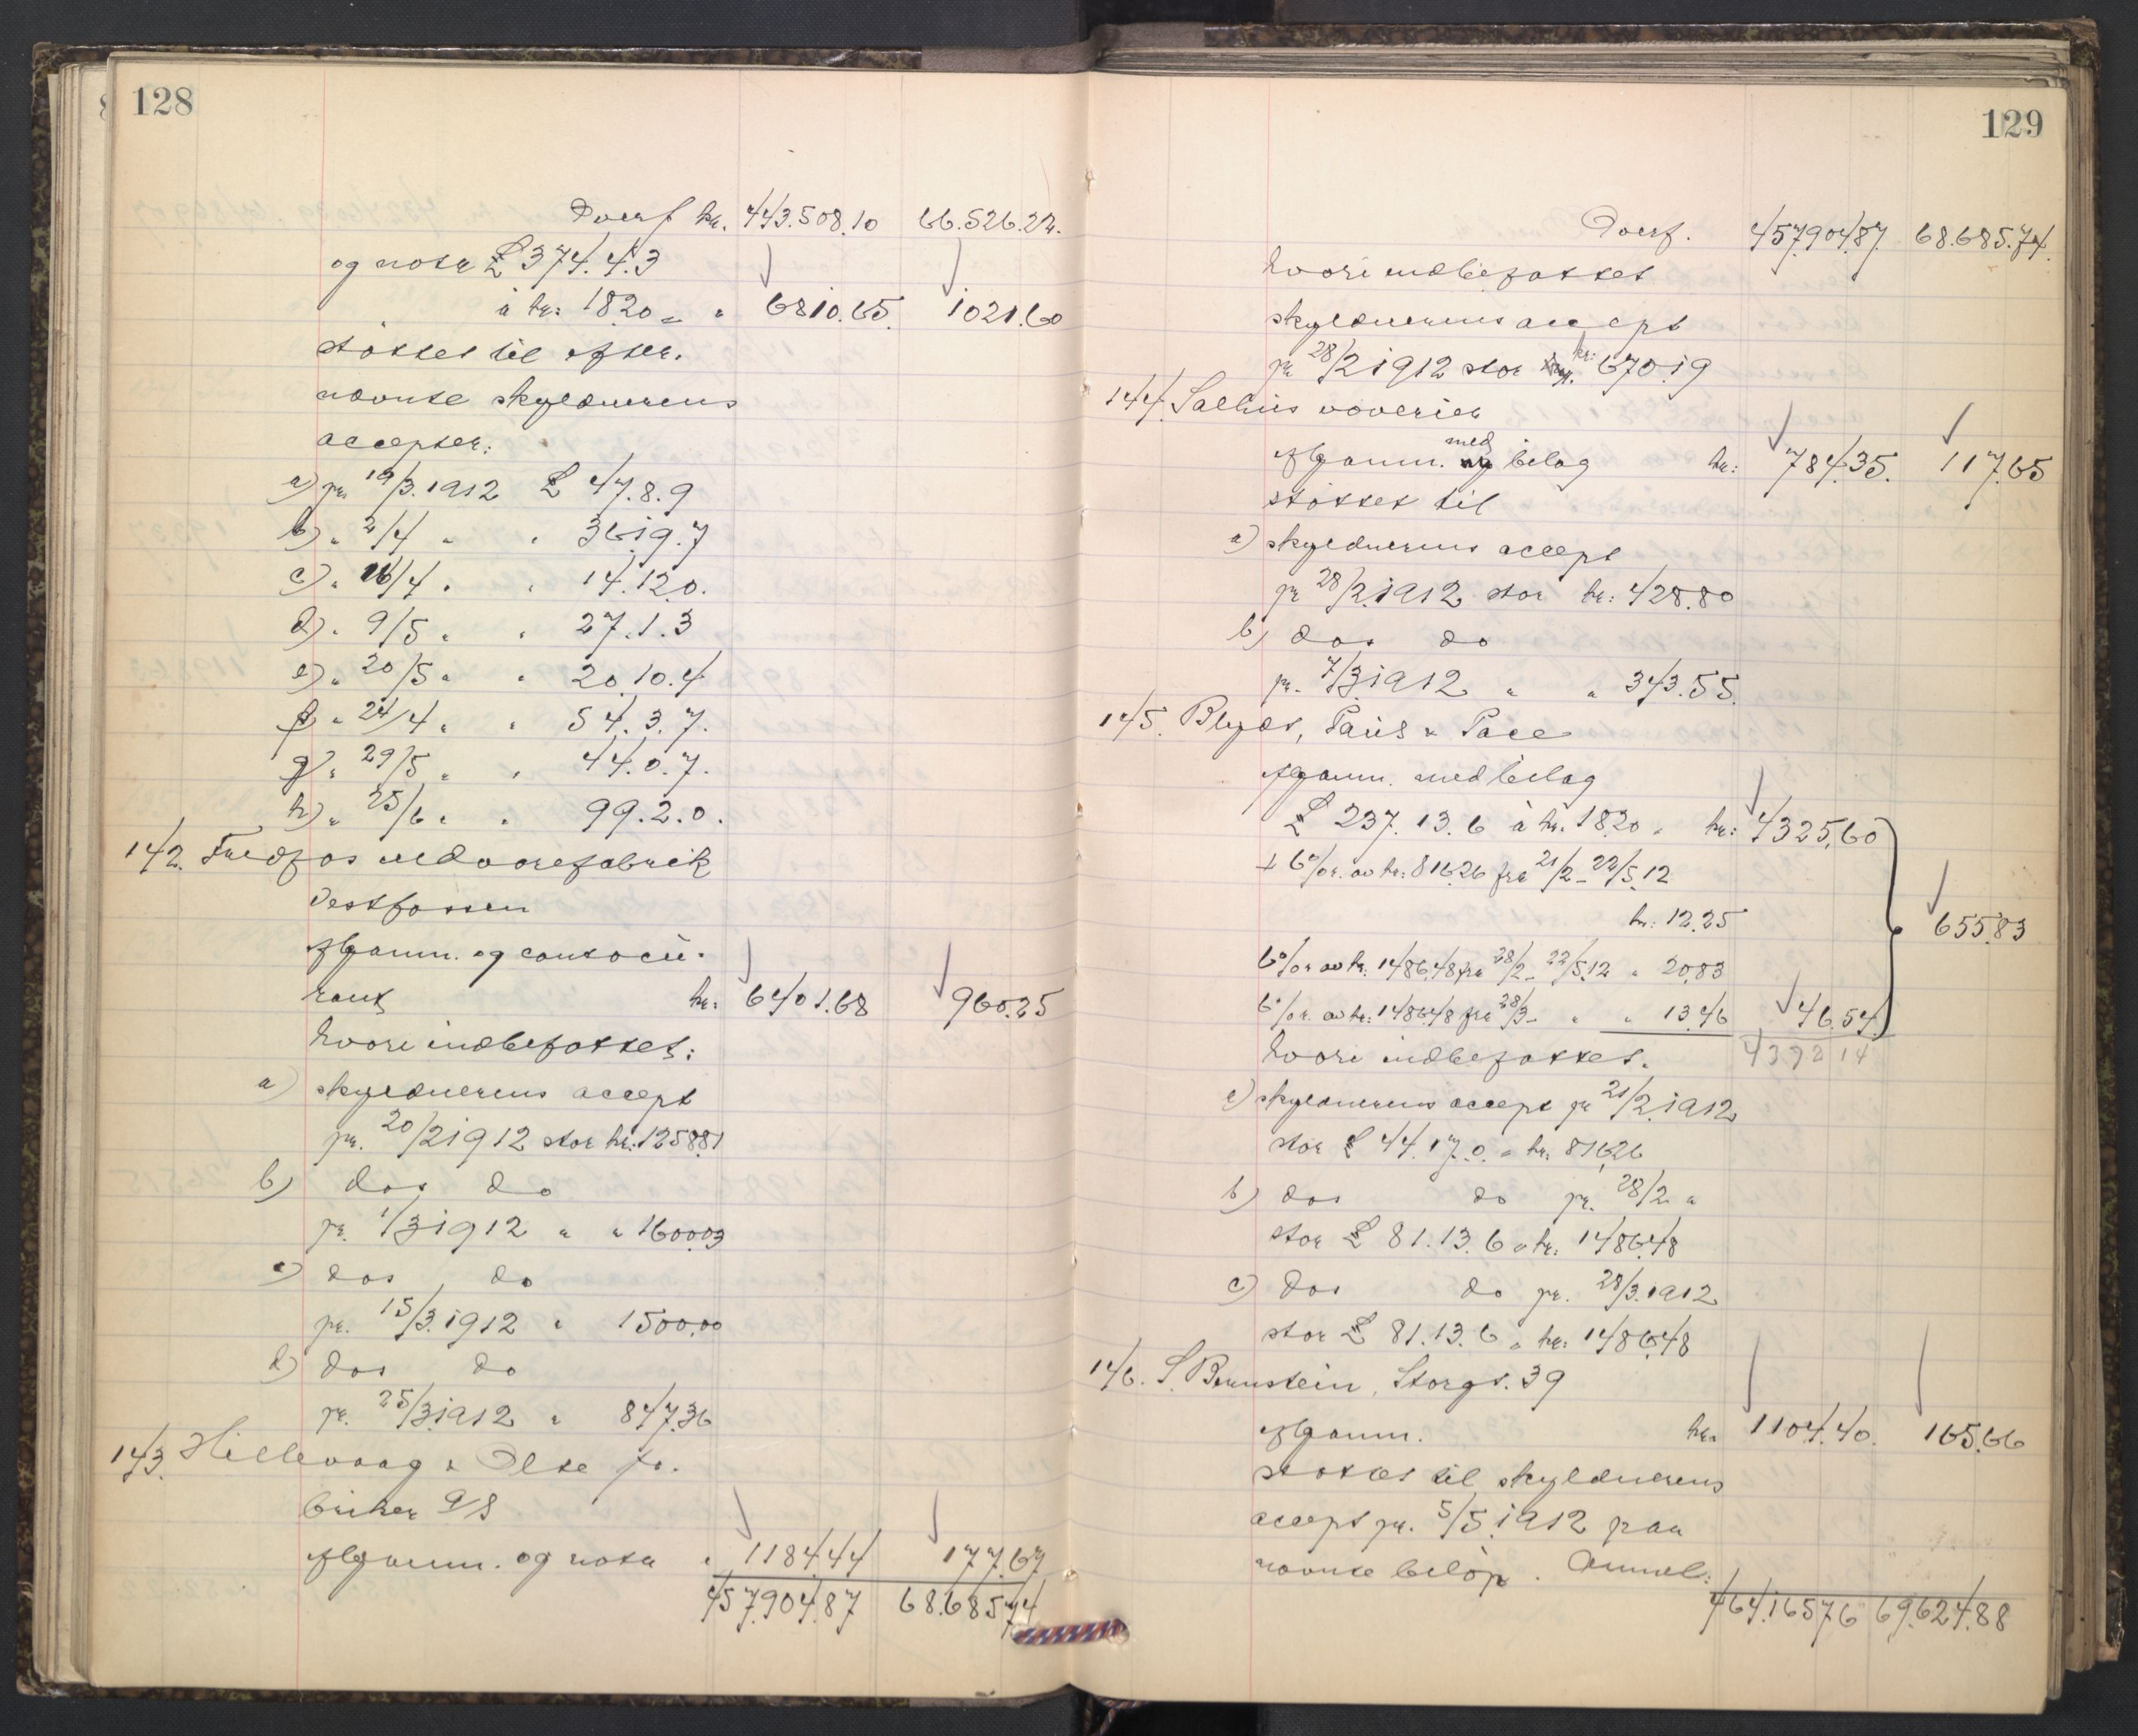 128
Overf kr. 443.508.10 66.526.22.
og nota £ 374.4.3
à kr: 18.20 = " 6810.65. 1021.60
støttet til efter.
nævnte skyldnerens
accepter:
a) pr. 19/3.1912 £ 47.8.9
b) " 2/4 " " 36.19.7
c) " 16/4 " " 14.12.0.
d) " 9/5 " " 27.1.3
e) " 20/5 " " 20.10.4
f) " 24/4 " " 54.3.7.
g) " 29/5 " " 44.0.7.
h) " 25/6 " " 99.2.0.
142. Fredfos uldvarefabrik
Vestfossen
afganm. og contocu-
rant kr: 6401.68 960.25
hvori indbefattet:
a) skyldnerens accept
pr. 20/2 1912 stor kr. 1258.81
b) das do
pr. 1/3 1912 " " 1600.03
c) das do
pr. 15/3.1912 " 1500.00
d) das do
pr. 25/3.1912 " 847.36
143. Hillevaag & Olse fa-
briker A/S
afganm. og nota " 1184.44 177.67
457.904.87 68.685.74
129
Overf. 457.904.87. 68.685.74.
hvori indbefattet
skyldnerens accept
pr 28/2 1912 stor kr: 670.19
144. Salhus væverier
afganm. med bilag kr: 784.35. 117.65
støttet til
a) skyldnerens accept
pr 28/2.1912 stor kr: 428.80
b) das do
pr. 7/3.1912 " " 343.55.
145. Blyds, Paris & Pace
afganm. med bilag
£ 237.13.6 à kr. 18.20 = kr: 4325,60
+ 6% r. av kr: 816.26 fra 21/2 - 22/5.12
kr: 12.25 655.83
6% r av kr: 1486.48 fra 28/2 - 22/5.12 " 20.83
6% r. av kr: 1486.48 fra 28/3 - " " 13.46 46.54
hvori indbefattet. 4372 14
a) skyldnerens accept pr 21/2.1912
stor £ 44.17.0. = kr: 816,26
b) das do pr. 28/2 "
stor £ 81.13.6 = kr: 1486.48
c) das do pr. 28/3.1912
stor £ 81.13.6 = kr: 1486.48
146. S. Bernstein, Storgt. 39
afganm. kr. 1104.40. 165.66
støttet til skyldnerens
accept pr. 5/5.1912 paa
nævnte beløp.
464.165.76 69.624.88